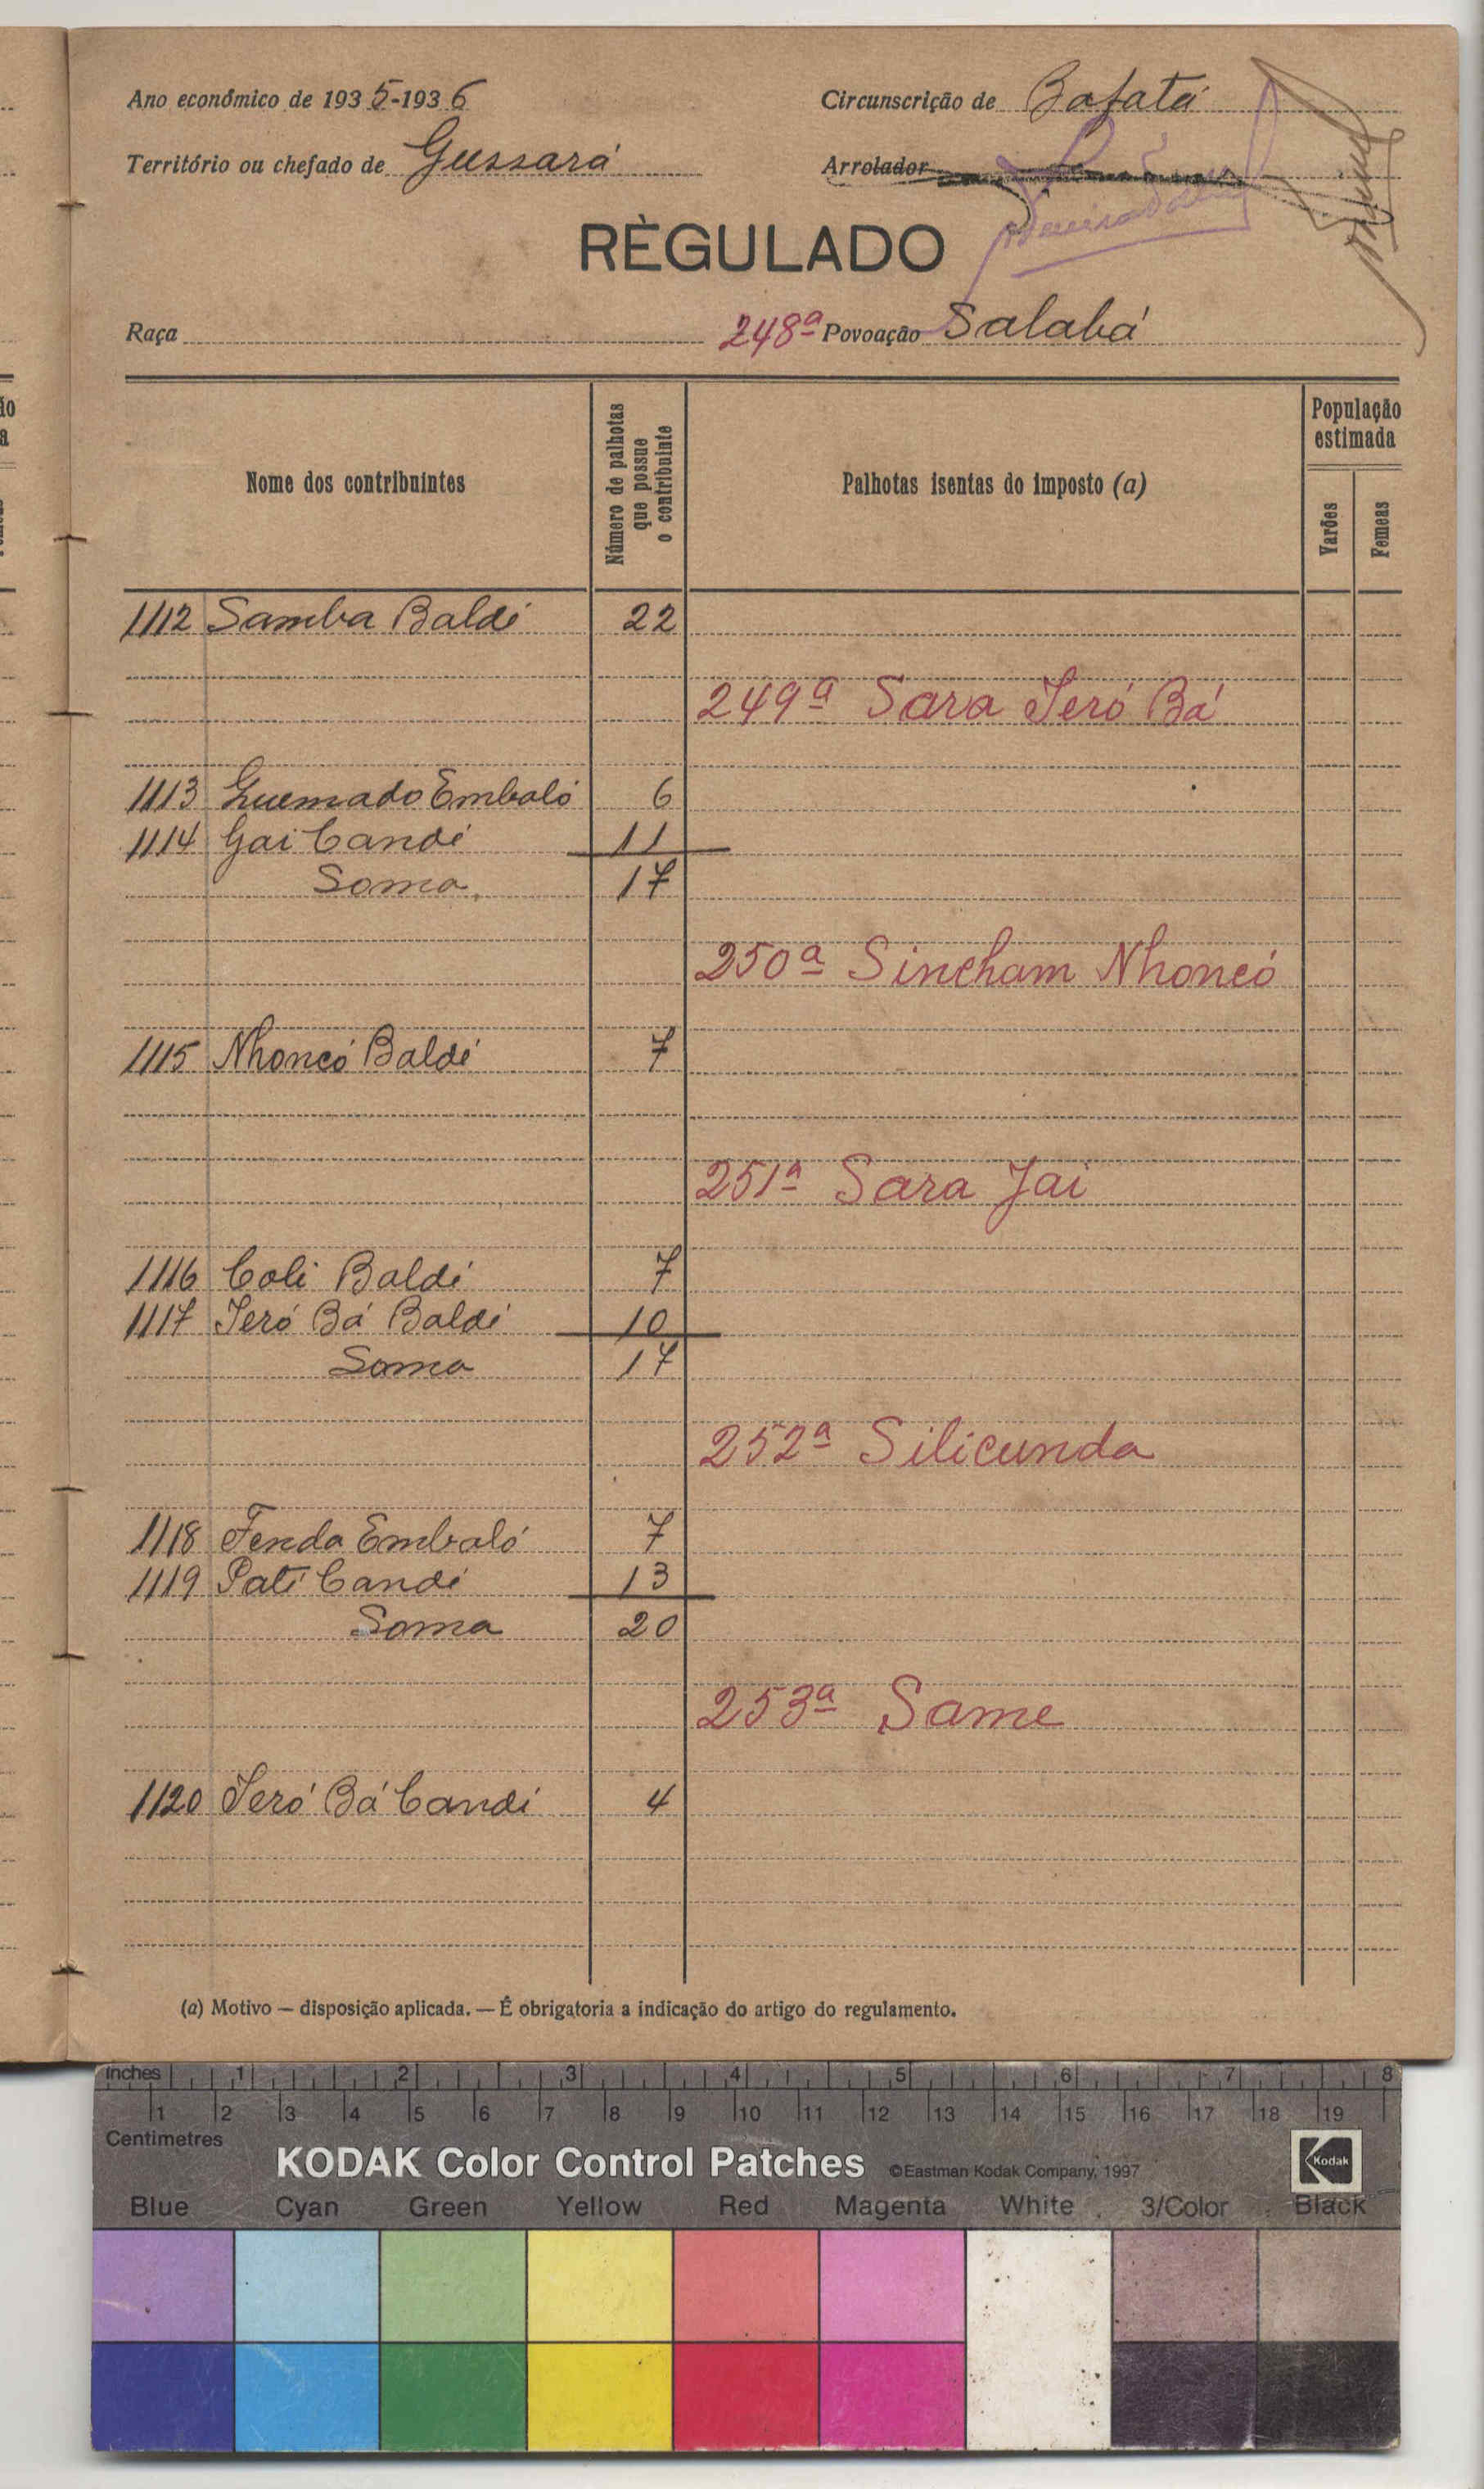 Ano econômico de 1935-1936
Circunscrição de Bafatá
Território ou chefado de Gussará
Arrolador
RÈGULADO
Raça
248ª Povoação Salabá
Nome dos contribuintes
Número de palhotas que possue o contribuinte
Palhotas isentas do imposto (a)
População estimada
Varões
Femeas
1112 Samba Baldé 22
249ª Sara Jeró Bá
1113 Guemado Embaló 6
1114 Gai Candé 11
Soma 17
250ª Sincham Nhoncó
1115 Nhoncó Baldé 7
251ª Sara Jai
1116 Coli Baldé 7
1117 Jeró Bá Baldé 10
Soma 17
252ª Silicunda
1118 Fenda Embaló 7
1119 Paté Candé 13
Soma 20
253ª Same
1120 Jeró Bá Candé 4
(a) Motivo — disposição aplicada. — É obrigatoria a indicação do artigo do regulamento.
Inches 1 2 3 4 5 6 7 8
1 2 3 4 5 6 7 8 9 10 11 12 13 14 15 16 17 18 19
Centimetres
KODAK Color Control Patches ©Eastman Kodak Company, 1997 Kodak
Blue Cyan Green Yellow Red Magenta White 3/Color Black